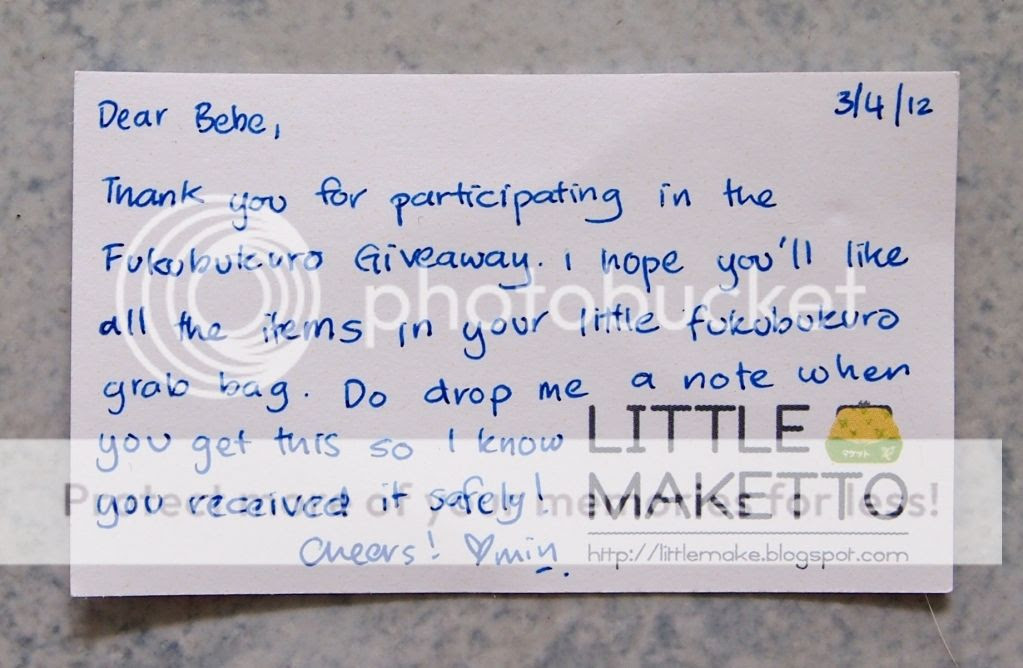 Dear Bebe,
3/4/12
Thank you for participating in the
Fukubukuro Giveaway. I hope you'll like
all the items in your little fukubukuro
grab bag. Do drop me a note when
you get this so I know
you received it safely!
Cheers! ♡min.
LITTLE
MAKETTO
http://littlemake.blogspot.com
photobucket
Protect more of your memories for less!